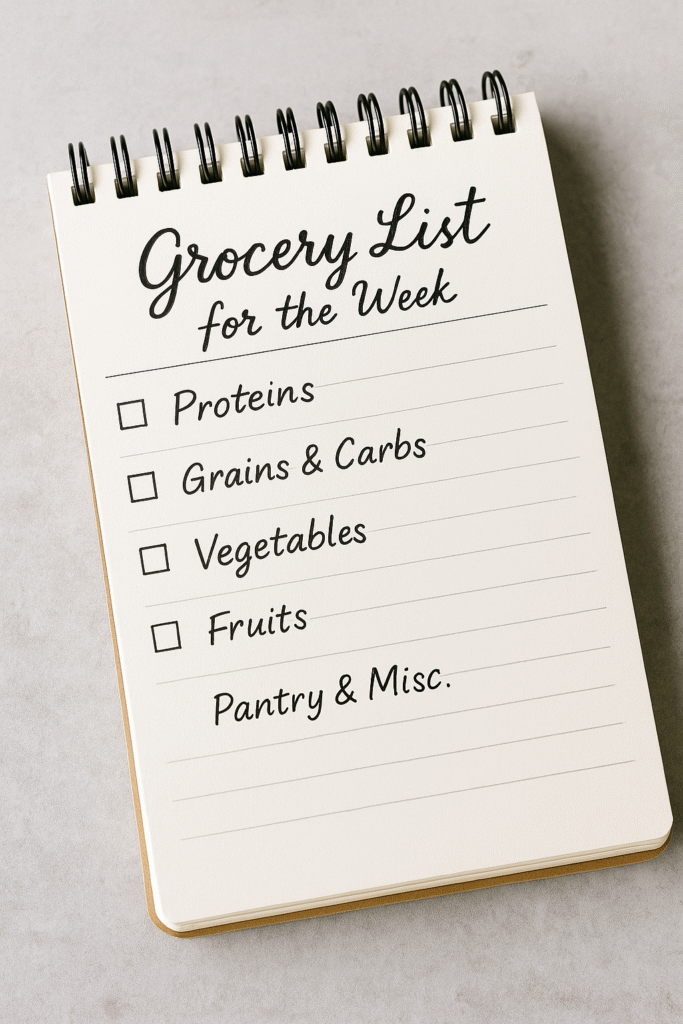 Grocery List
for the Week
Proteins
Grains & Carbs
Vegetables
Fruits
Pantry & Misc.